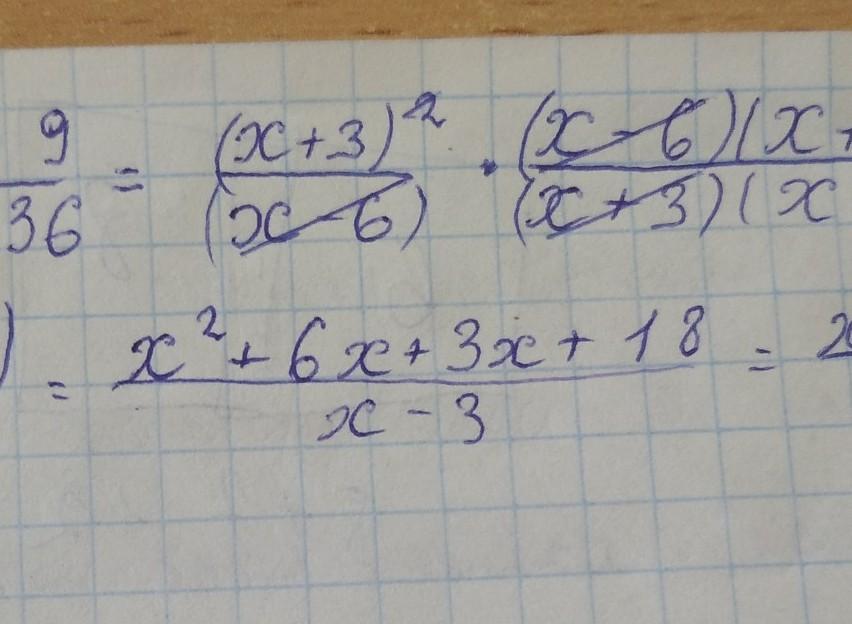 9/36 = (x+3)²/(x-6) · (x-6)(x+/(x+3)(x
) = x²+6x+3x+18/x-3 =